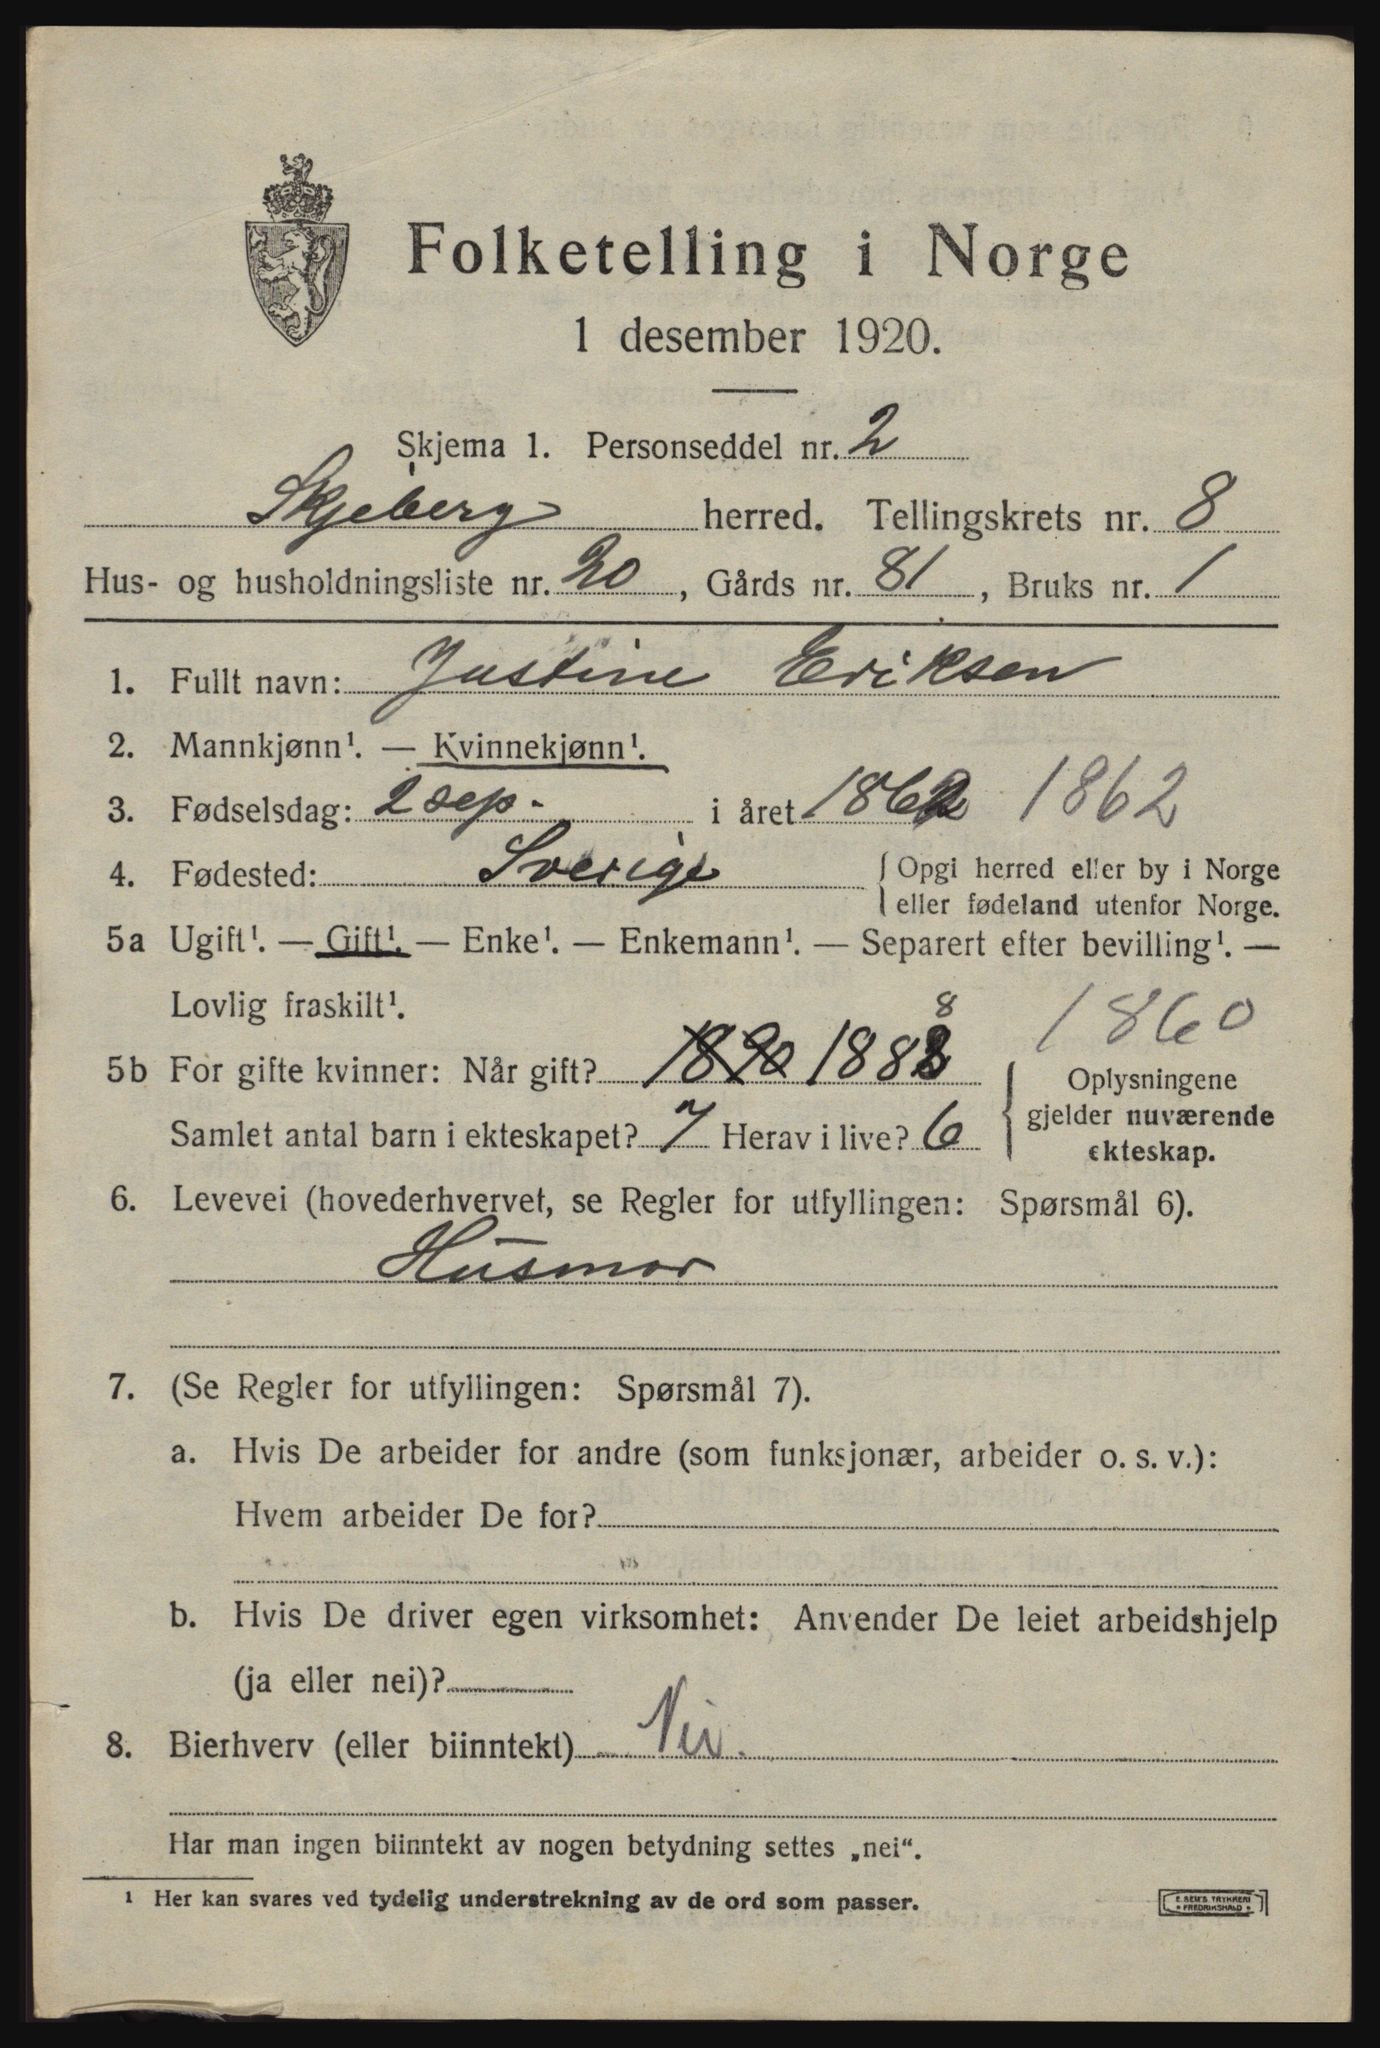 Folketelling i Norge
1 desember 1920.
Skjema 1. Personseddel nr. 2
Skjeberg herred. Tellingskrets nr. 8
Hus- og husholdningsliste nr. 20, Gårds nr. 81, Bruks nr. 1
1. Fullt navn: Justine Eriksen
2. Mannkjønn¹. — Kvinnekjønn¹.
3. Fødselsdag: 2 sep. i året 1862 1862
4. Fødested: Sverige
{ Opgi herred eller by i Norge
eller fødeland utenfor Norge.
5a Ugift¹. — Gift¹. — Enke¹. — Enkemann¹. — Separert efter bevilling¹. —
Lovlig fraskilt¹.
1860
8
5b For gifte kvinner: Når gift? 1890 1888
Samlet antal barn i ekteskapet? 7 Herav i live? 6
{ Oplysningene
gjelder nuværende
ekteskap.
6. Levevei (hovederhvervet, se Regler for utfyllingen: Spørsmål 6).
Husmor
7. (Se Regler for utfyllingen: Spørsmål 7).
a. Hvis De arbeider for andre (som funksjonær, arbeider o. s. v.):
Hvem arbeider De for?
b. Hvis De driver egen virksomhet: Anvender De leiet arbeidshjelp
(ja eller nei)?
8. Bierhverv (eller biinntekt) Nei.
Har man ingen biinntekt av nogen betydning settes „nei“.
¹ Her kan svares ved tydelig understrekning av de ord som passer.
E. SEM'S TRYKKERI
FREDRIKSHALD